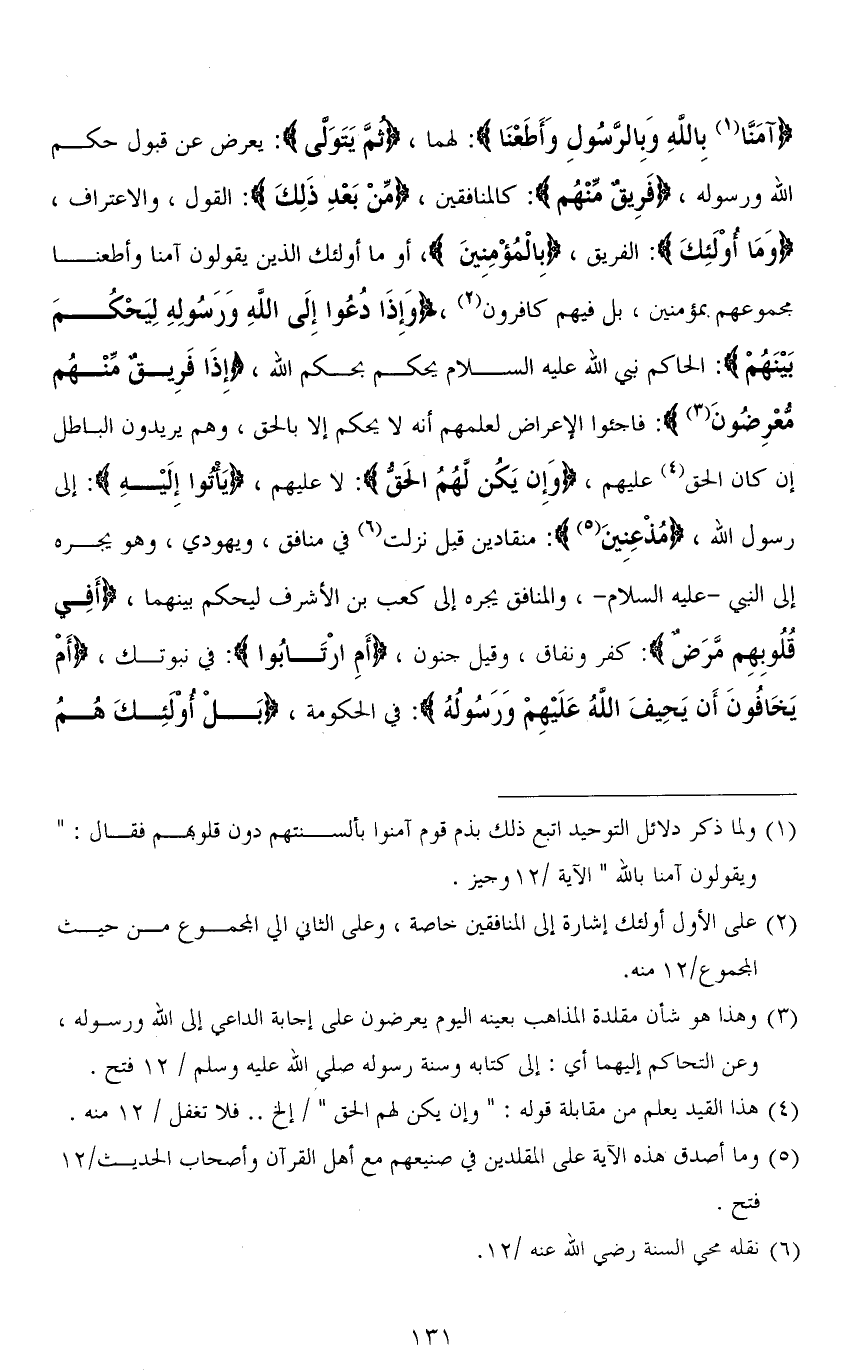 ﴿آمَنَّا(١) بِاللَّهِ وَبِالرَّسُولِ وَأَطَعْنَا﴾: لهما ، ﴿ثُمَّ يَتَوَلَّى﴾: يعرض عن قبول حكم
الله ورسوله ، ﴿فَرِيقٌ مِّنْهُم﴾: كالمنافقين ، ﴿مِّنْ بَعْدِ ذَلِكَ﴾: القول ، والاعتراف ،
﴿وَمَا أُوْلَئِكَ﴾: الفريق ، ﴿بِالْمُؤْمِنِينَ﴾، أو ما أولئك الذين يقولون آمنا وأطعنا
مجموعهم بمؤمنين ، بل فيهم كافرون(٢) ، ﴿وَإِذَا دُعُوا إِلَى اللَّهِ وَرَسُولِهِ لِيَحْكُمَ
بَيْنَهُمْ﴾: الحاكم نبي الله عليه السلام يحكم بحكم الله ، ﴿إِذَا فَرِيقٌ مِّنْهُم
مُّعْرِضُونَ(٣)﴾: فاجئوا الإعراض لعلمهم أنه لا يحكم إلا بالحق ، وهم يريدون الباطل
إن كان الحق(٤) عليهم ، ﴿وَإِن يَكُن لَّهُمُ الحَقُّ﴾: لا عليهم ، ﴿يَأْتُوا إِلَيْهِ﴾: إلى
رسول الله ، ﴿مُذْعِنِينَ(٥)﴾: منقادين قيل نزلت(٦) في منافق ، ويهودي ، وهو يجره
إلى النبي -عليه السلام- ، والمنافق يجره إلى كعب بن الأشرف ليحكم بينهما ، ﴿أَفِي
قُلُوبِهِم مَّرَضٌ﴾: كفر ونفاق ، وقيل جنون ، ﴿أَمِ ارْتَابُوا﴾: في نبوتك ، ﴿أَمْ
يَخَافُونَ أَن يَحِيفَ اللَّهُ عَلَيْهِمْ وَرَسُولُهُ﴾: في الحكومة ، ﴿بَلْ أُوْلَئِكَ هُمُ
(١) ولما ذكر دلائل التوحيد اتبع ذلك بذم قوم آمنوا بألسنتهم دون قلوبهم فقال : "
ويقولون آمنا بالله " الآية /١٢ وجيز .
(٢) على الأول أولئك إشارة إلى المنافقين خاصة ، وعلى الثاني الي المجموع من حيث
المجموع/١٢ منه.
(٣) وهذا هو شأن مقلدة المذاهب بعينه اليوم يعرضون على إجابة الداعي إلى الله ورسوله ،
وعن التحاكم إليهما أي : إلى كتابه وسنة رسوله صلي الله عليه وسلم / ١٢ فتح .
(٤) هذا القيد يعلم من مقابلة قوله : " وإن يكن لهم الحق " / إلخ .. فلا تغفل / ١٢ منه .
(٥) وما أصدق هذه الآية على المقلدين في صنيعهم مع أهل القرآن وأصحاب الحديث/١٢
فتح .
(٦) نقله محي السنة رضي الله عنه /١٢.
١٣١